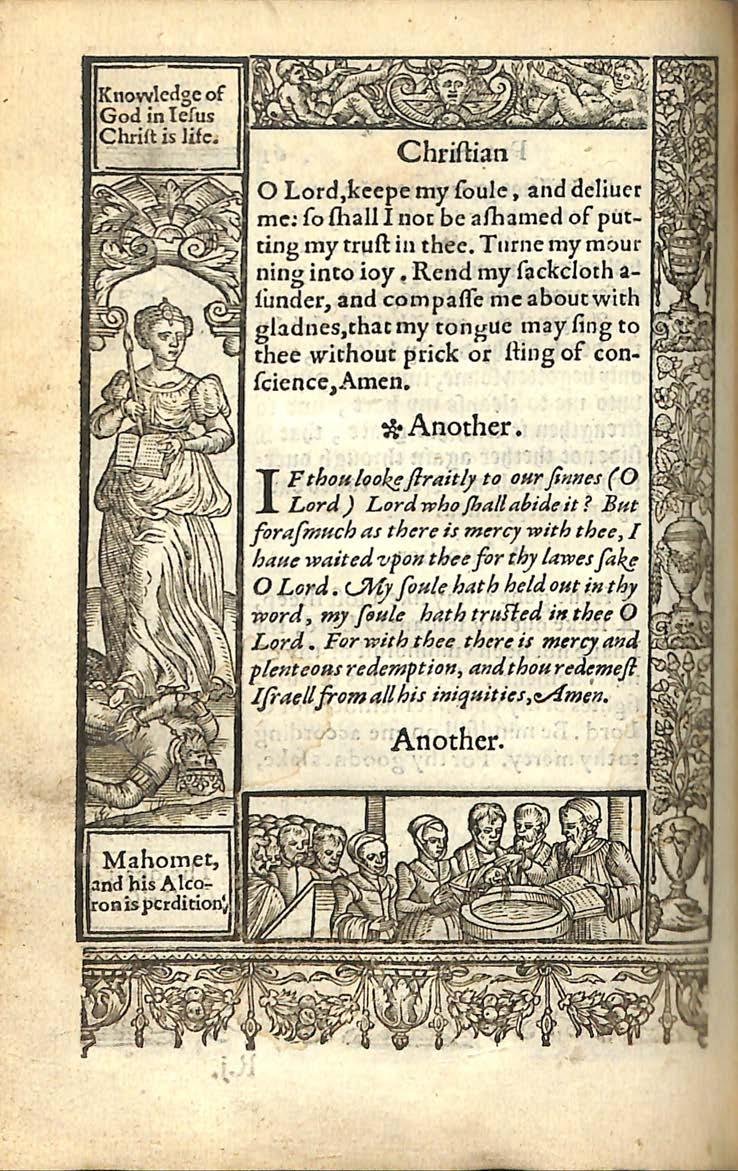 Knowledge of
God in Ieſus
Chriſt is life.
Chriſtian
O Lord,keepe my ſoule, and deliuer
me: ſo ſhall I not be aſhamed of put-
ting my truſt in thee. Turne my mour
ning into ioy. Rend my ſackcloth a-
ſunder, and compaſſe me about with
gladnes,that my tongue may ſing to
thee without prick or ſting of con-
ſcience,Amen.
✲ Another.
IF thou looke ſtraitly to our ſinnes (O
Lord) Lord who ſhall abide it? But
foraſmuch as there is mercy with thee, I
haue waited vpon thee for thy lawes ſake
O Lord. My ſoule hath held out in thy
word, my ſoule hath truſted in thee O
Lord. For with thee there is mercy and
plenteous redemption, and thou redemeſt
Iſraell from all his iniquities,Amen.
Another.
Mahomet,
and his Alco-
ron is perdition,